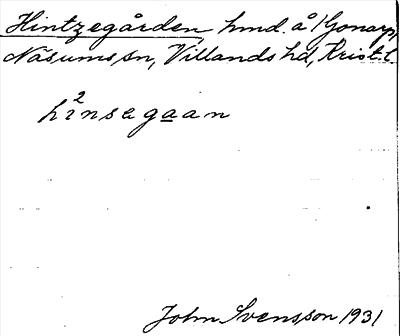 Hintzegården, hmd. å /Gonarp,
Näsums sn, Villands hd, Krist. l.
hi²nsegaan
John Svensson 1931